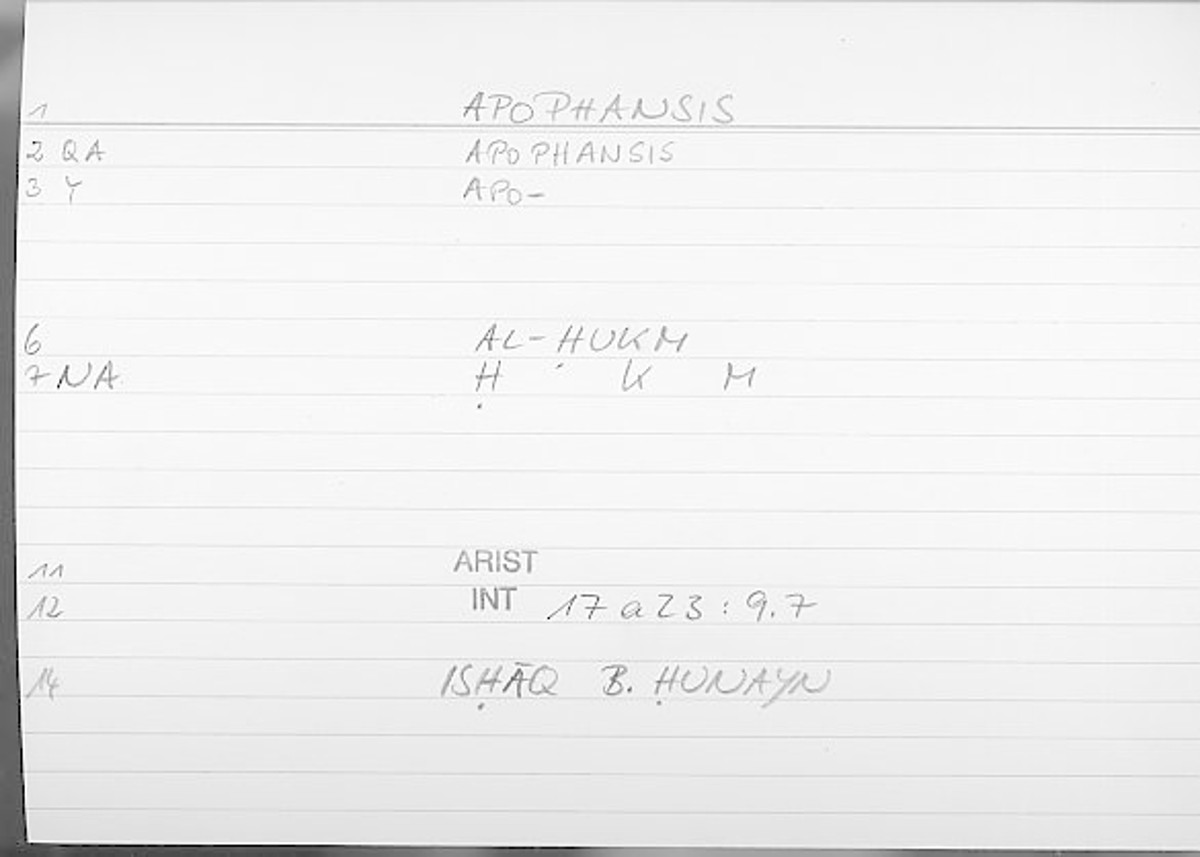 1 APOPHANSIS
2 QA APOPHANSIS
3 Y APO-
6 AL-ḤUKM
7 NA Ḥ K M
11 ARIST
12 INT 17a23:9.7
14 ISḤĀQ B. ḤUNAYN